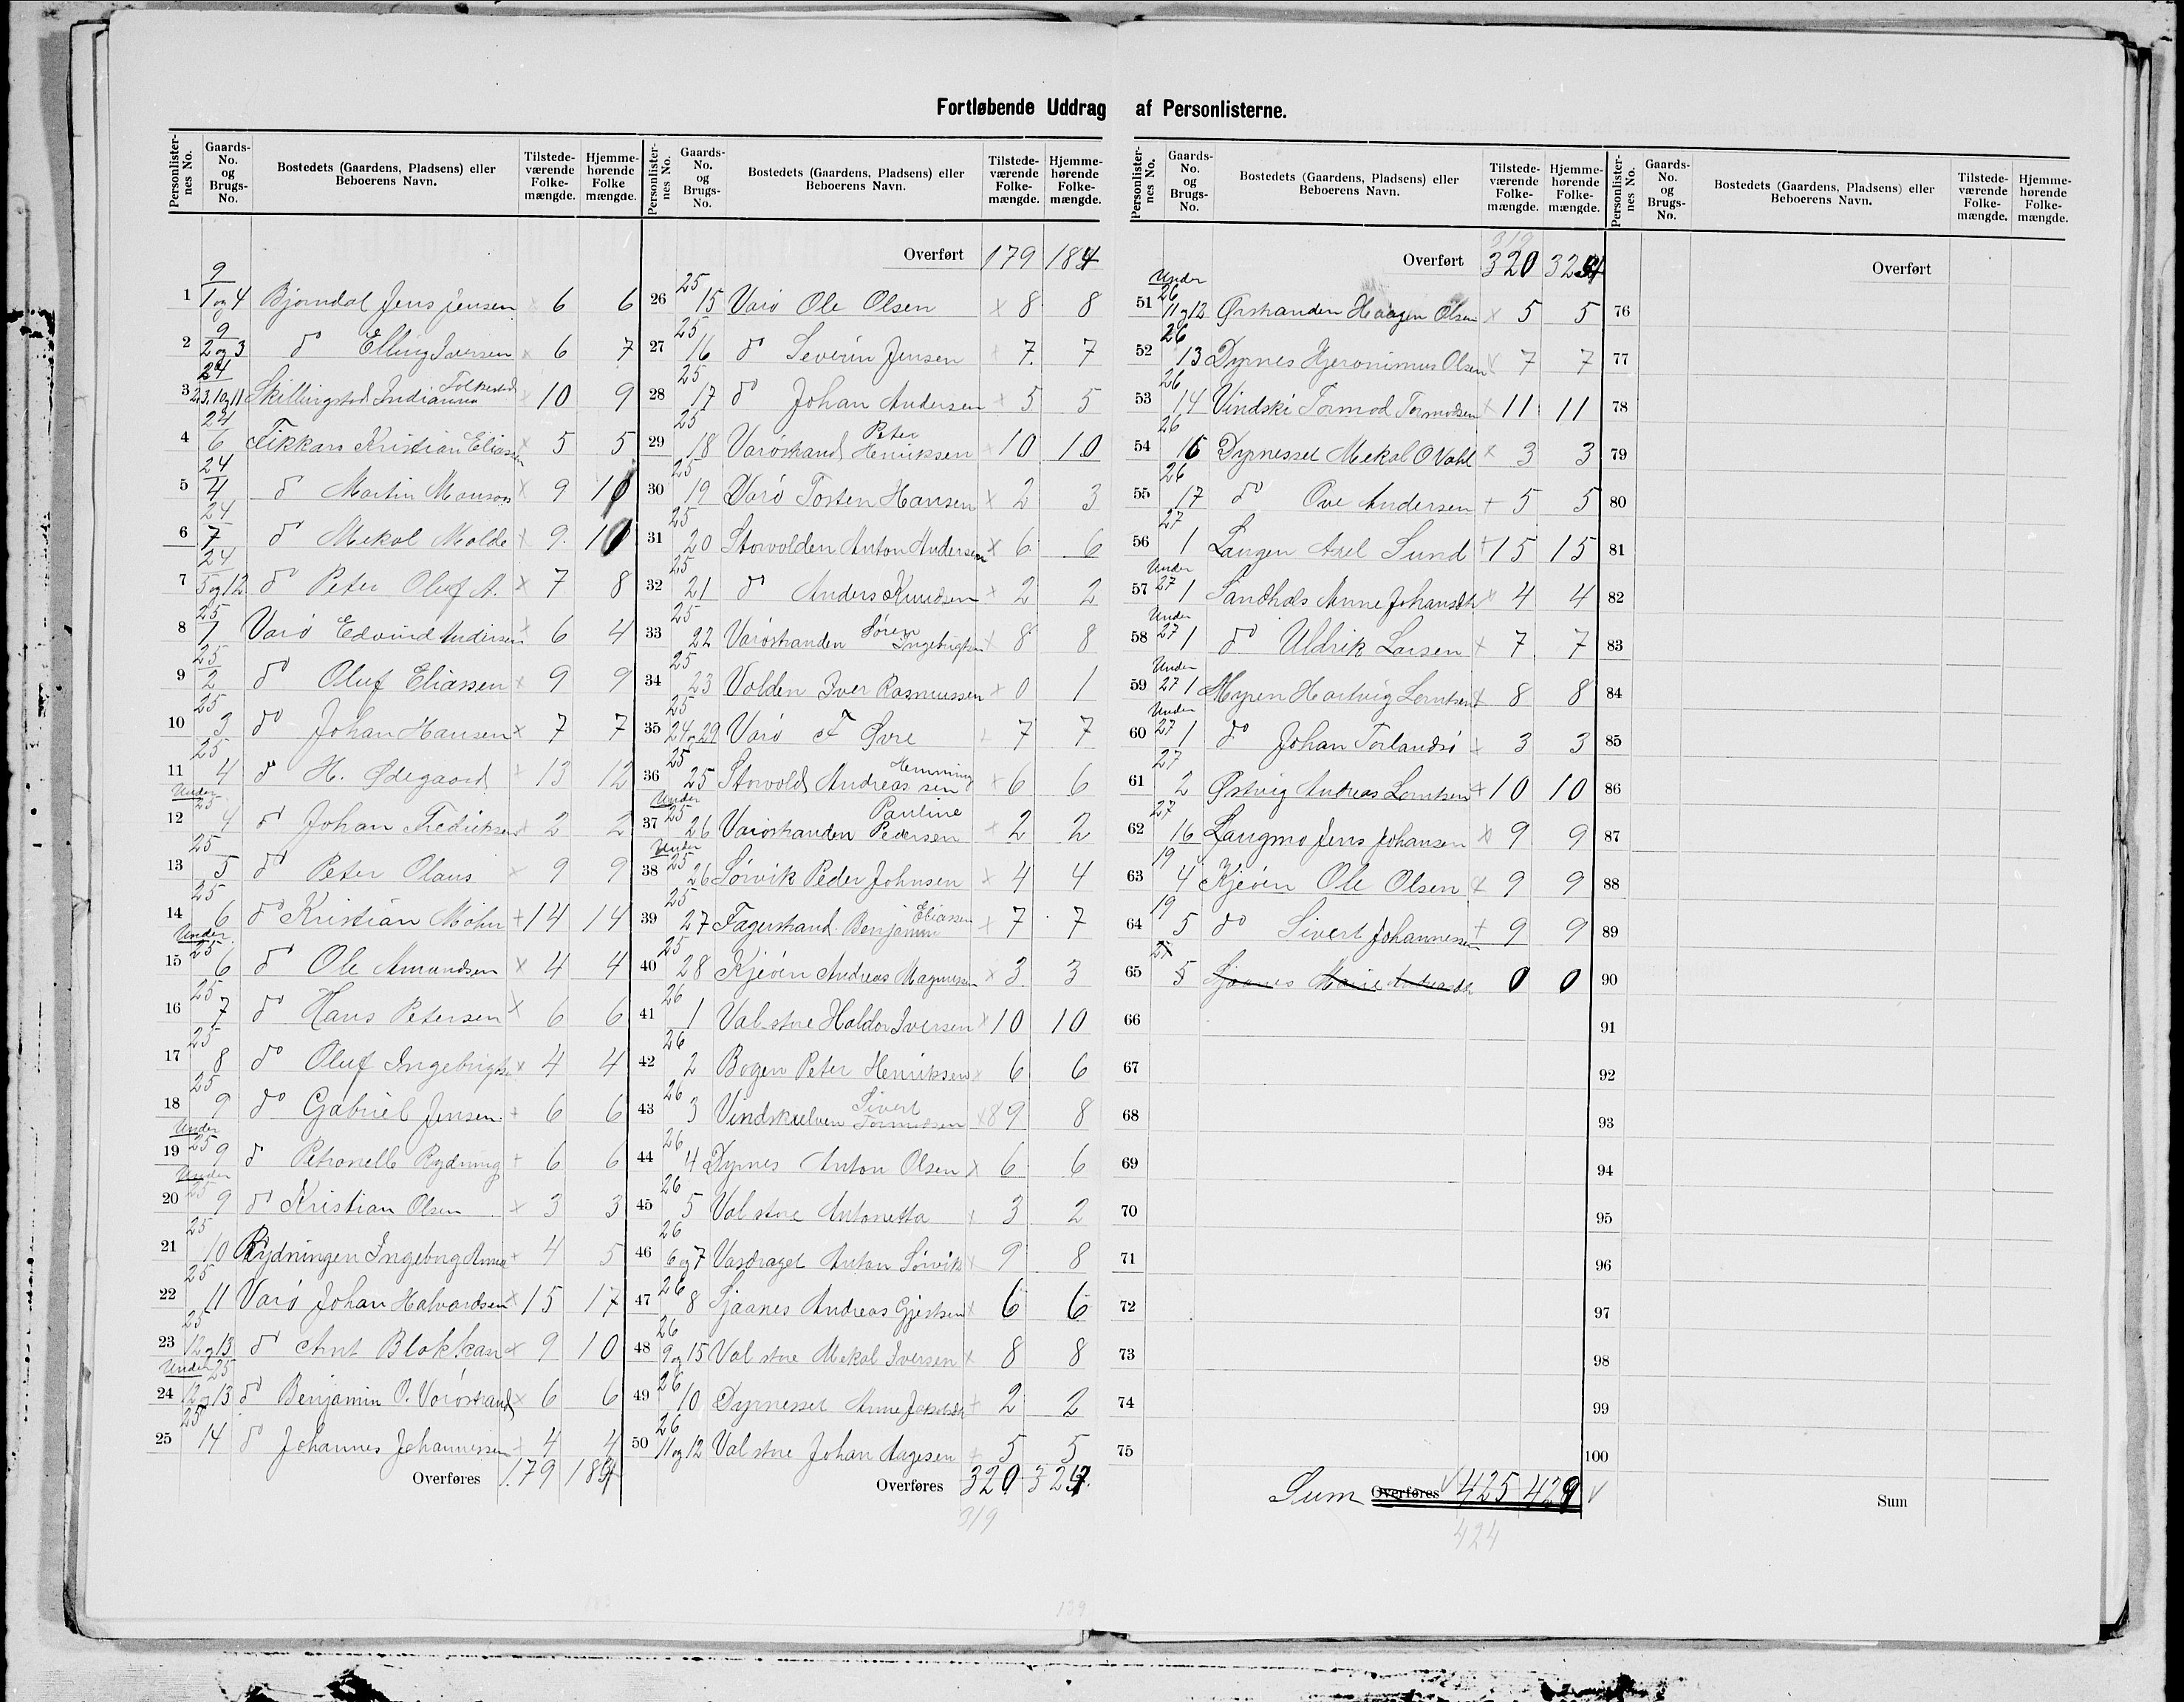 Fortløbende Uddrag af Personlisterne.
Personlisternes No. Gaards-No. og Brugs-No. Bostedets (Gaardens, Pladsens) eller Beboerens Navn. Tilstedeværende Folkemængde. Hjemmehørende Folkemængde.
1 9 1 og 4 Bjørndal Jens Jensen x 6 6
2 9 2 og 3 do Elling Iversen x 6 7
3 24 2.3.10 og 11 Skillingstad Indianna x 10 9
4 24 6 Fikkan Kristian Eliassen x 5 5
5 24 4 do Martin Monson x 9 10
6 24 7 do Mekal Molde x 9 10
7 24 5 og 12 do Peter Oluf A. x 7 8
8 25 1 Varø Edvind Andersen x 6 4
9 25 2 do Oluf Eliassen x 9 9
10 25 3 do Johan Hansen x 7 7
11 25 4 do H. Ødegaard x 13 12
12 Under 25 4 do Johan Fredriksen x 2 2
13 25 5 do Peter Olaus x 9 9
14 25 6 do Kristian Mohn + 14 14
15 Under 25 6 do Ole Amundsen x 4 4
16 25 7 do Hans Petersen x 6 6
17 25 8 do Oluf Ingebrigtsen x 4 4
18 25 9 do Gabriel Jensen + 6 6
19 Under 25 9 do Petronelle Rydning + 6 6
20 Under 25 9 do Kristian Olsen x 3 3
21 25 10 Rydningen Ingeborg Anna + 4 5
22 25 11 Varø Johan Halvardsen x 15 17
23 25 12 og 13 do Arnt Blokkan x 9 10
24 Under 25 12 og 13 do Benjamin O. Varøstrand x 6 6
25 25 14 do Johannes Johannessen + 4 4
Overføres 179 184
Overført 179 184
26 25 15 Varø Ole Olsen x 8 8
27 25 16 do Severin Jensen + 7 7
28 25 17 do Johan Andersen + 5 5
29 25 18 Varøstrand Peter Henriksen + 10 10
30 25 19 Varø Tosten Hansen x 2 3
31 25 20 Storvolden Anton Andersen x 6 6
32 25 21 do Anders Knudsen x 2 2
33 25 22 Varøstranden Søren Ingebrigtsen x 8 8
34 25 23 Volden Iver Rasmussen x 0 1
35 25 24 og 29 Varø F Øvre + 7 7
36 25 25 Storvold Andreas Hemmingsen + 6 6
37 Under 25 26 Varøstranden Pauline Pedersen x 2 2
38 Under 25 26 Sørvik Peder Johnsen x 4 4
39 25 27 Fagerstrand Benjamin Eliassen + 7 7
40 25 28 Kjeøen Andreas Magnussen x 3 3
41 26 1 Val store Haldor Iversen x 10 10
42 26 2 Bogen Peter Henriksen x 6 6
43 26 3 Sivert x 8 9 8
44 26 4 Dyrnes Anton Olsen x 6 6
45 26 5 Val store Antonetta x 3 2
46 26 6 og 7 Vasdraget Anton Sørvik x 9 8
47 26 8 Sjaanes Andreas Gjertsen x 6 6
48 26 9 og 15 Val store Mekal Iversen x 8 8
49 26 10 Dyrnesset Anne Jakobsdt + 2 2
50 26 11 og 12 Val store Johan Aagesen + 5 5
Overføres 320
319
Overført 320
319
51 Under 26 11 og 12 Ørstranden Haagen Olsen x 5 5
52 26 13 Dyrnes Hjeronimus Olsen x 7 7
53 26 14 Vindski Tormod Tormodsen x 11 11
54 26 16 Dyrnesset Mekal O Vahl x 3 3
55 26 17 do Ove Andersen + 5 5
56 27 1 Langen Axel Sund + 15 15
57 Under 27 1 Sandhals Anne Johansdt x 4 4
58 Under 27 1 do Uldrik Larsen + 7 7
59 Under 27 1 Myren Hartvig Lorntsen x 8 8
60 Under 27 1 do Johan Torlandsø + 3 3
61 27 2 Østvig Andreas Lorntsen + 10 10
62 27 16 Langmo Jens Johansen x 9 9
63 19 4 Kjeøen Ole Olsen x 9 9
64 19 5 do Sivert Johannessen + 9 9
65 5 Sjaanes Marie Andreasdt 0 0
66
67
68
69
70
71
72
73
74
75
Sum Overføres 425 429
424
Overført
76
77
78
79
80
81
82
83
84
85
86
87
88
89
90
91
92
93
94
95
96
97
98
99
100
Sum
139